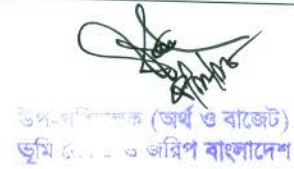 উপ-পরিচালক (অর্থ ও বাজেট)
ভূমি ও জরিপ বাংলাদেশ